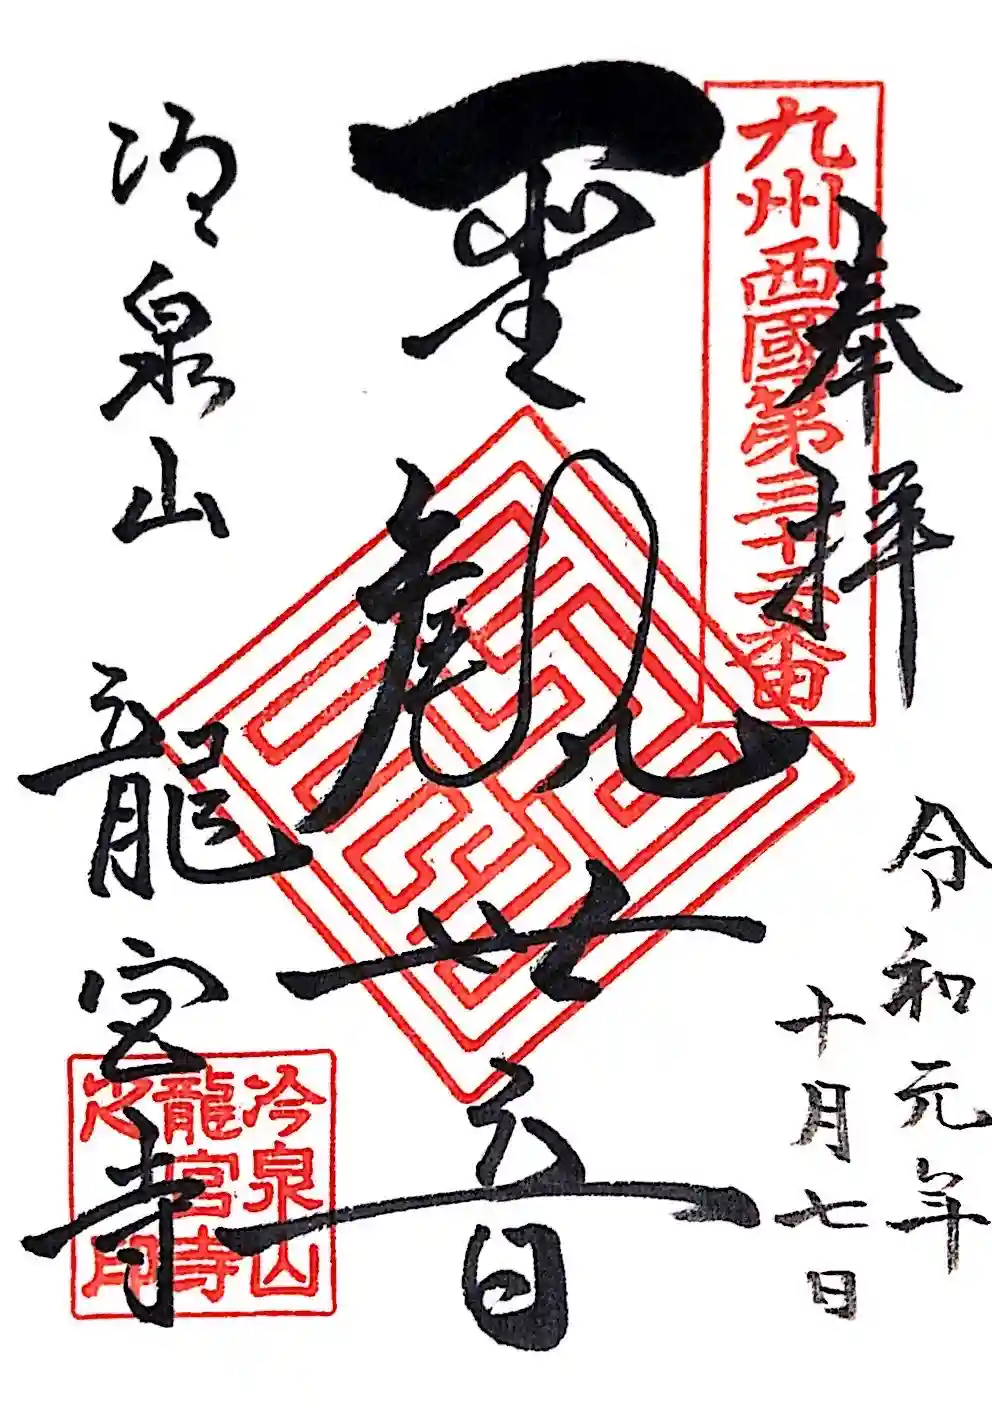 九州西國第三十二番
奉拝
令和元年
十月七日
聖観世音
冷泉山 龍宮寺
冷泉山
龍宮寺
之印